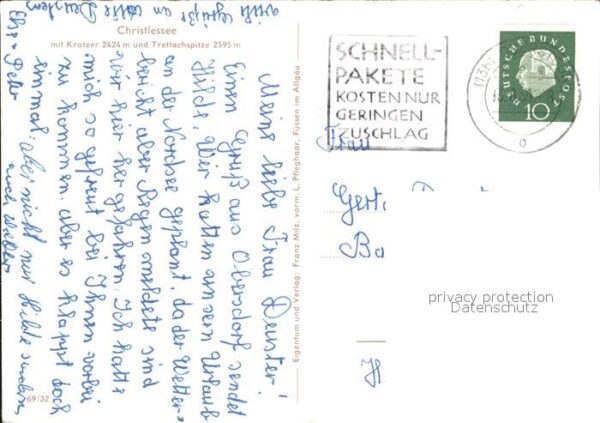 Christlessee
mit Kratzer 2424 m und Trettachspitze 2595 m
Meine liebe Frau Deister!
Einen Gruß aus Oberstdorf sendet
Hilde. Wir hatten unseren Urlaub
an der Nordsee geplant, da der Wetter=
bericht aber Regen meldete sind
wir hier her gefahren. Ich hatte
mich so gefreut bei Ihnen vorbei
zu kommen. aber es klappt doch
einmal, aber nicht nur Hilde sondern
auch
Ihr Peter
Grüße an
69/32
Eigentum und Verlag: Franz Milz, vorm. L. Pfleghaar, Füssen im Allgäu
SCHNELL-
PAKETE
KOSTEN NUR
GERINGEN
ZUSCHLAG
DEUTSCHE BUNDESPOST
10
Frau
Gert.
Ba
privacy protection
Datenschutz